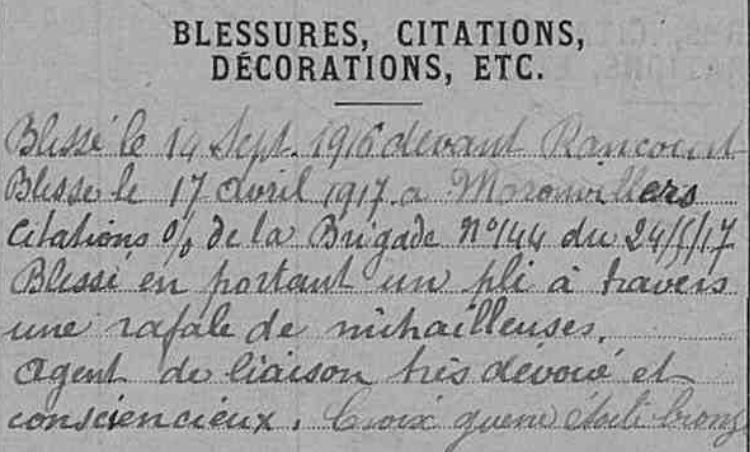 BLESSURES, CITATIONS,
DÉCORATIONS, ETC.
Blessé le 14 Sept. 1916 devant Rancourt
Blessé le 17 avril 1917 a Moronvillers
Citations o/ de la Brigade No 144 du 24/5/17
Blessé en portant un pli à travers
une rafale de mitrailleuses.
Agent de liaison très dévoué et
consciencieux. Croix guerre étoile bronze